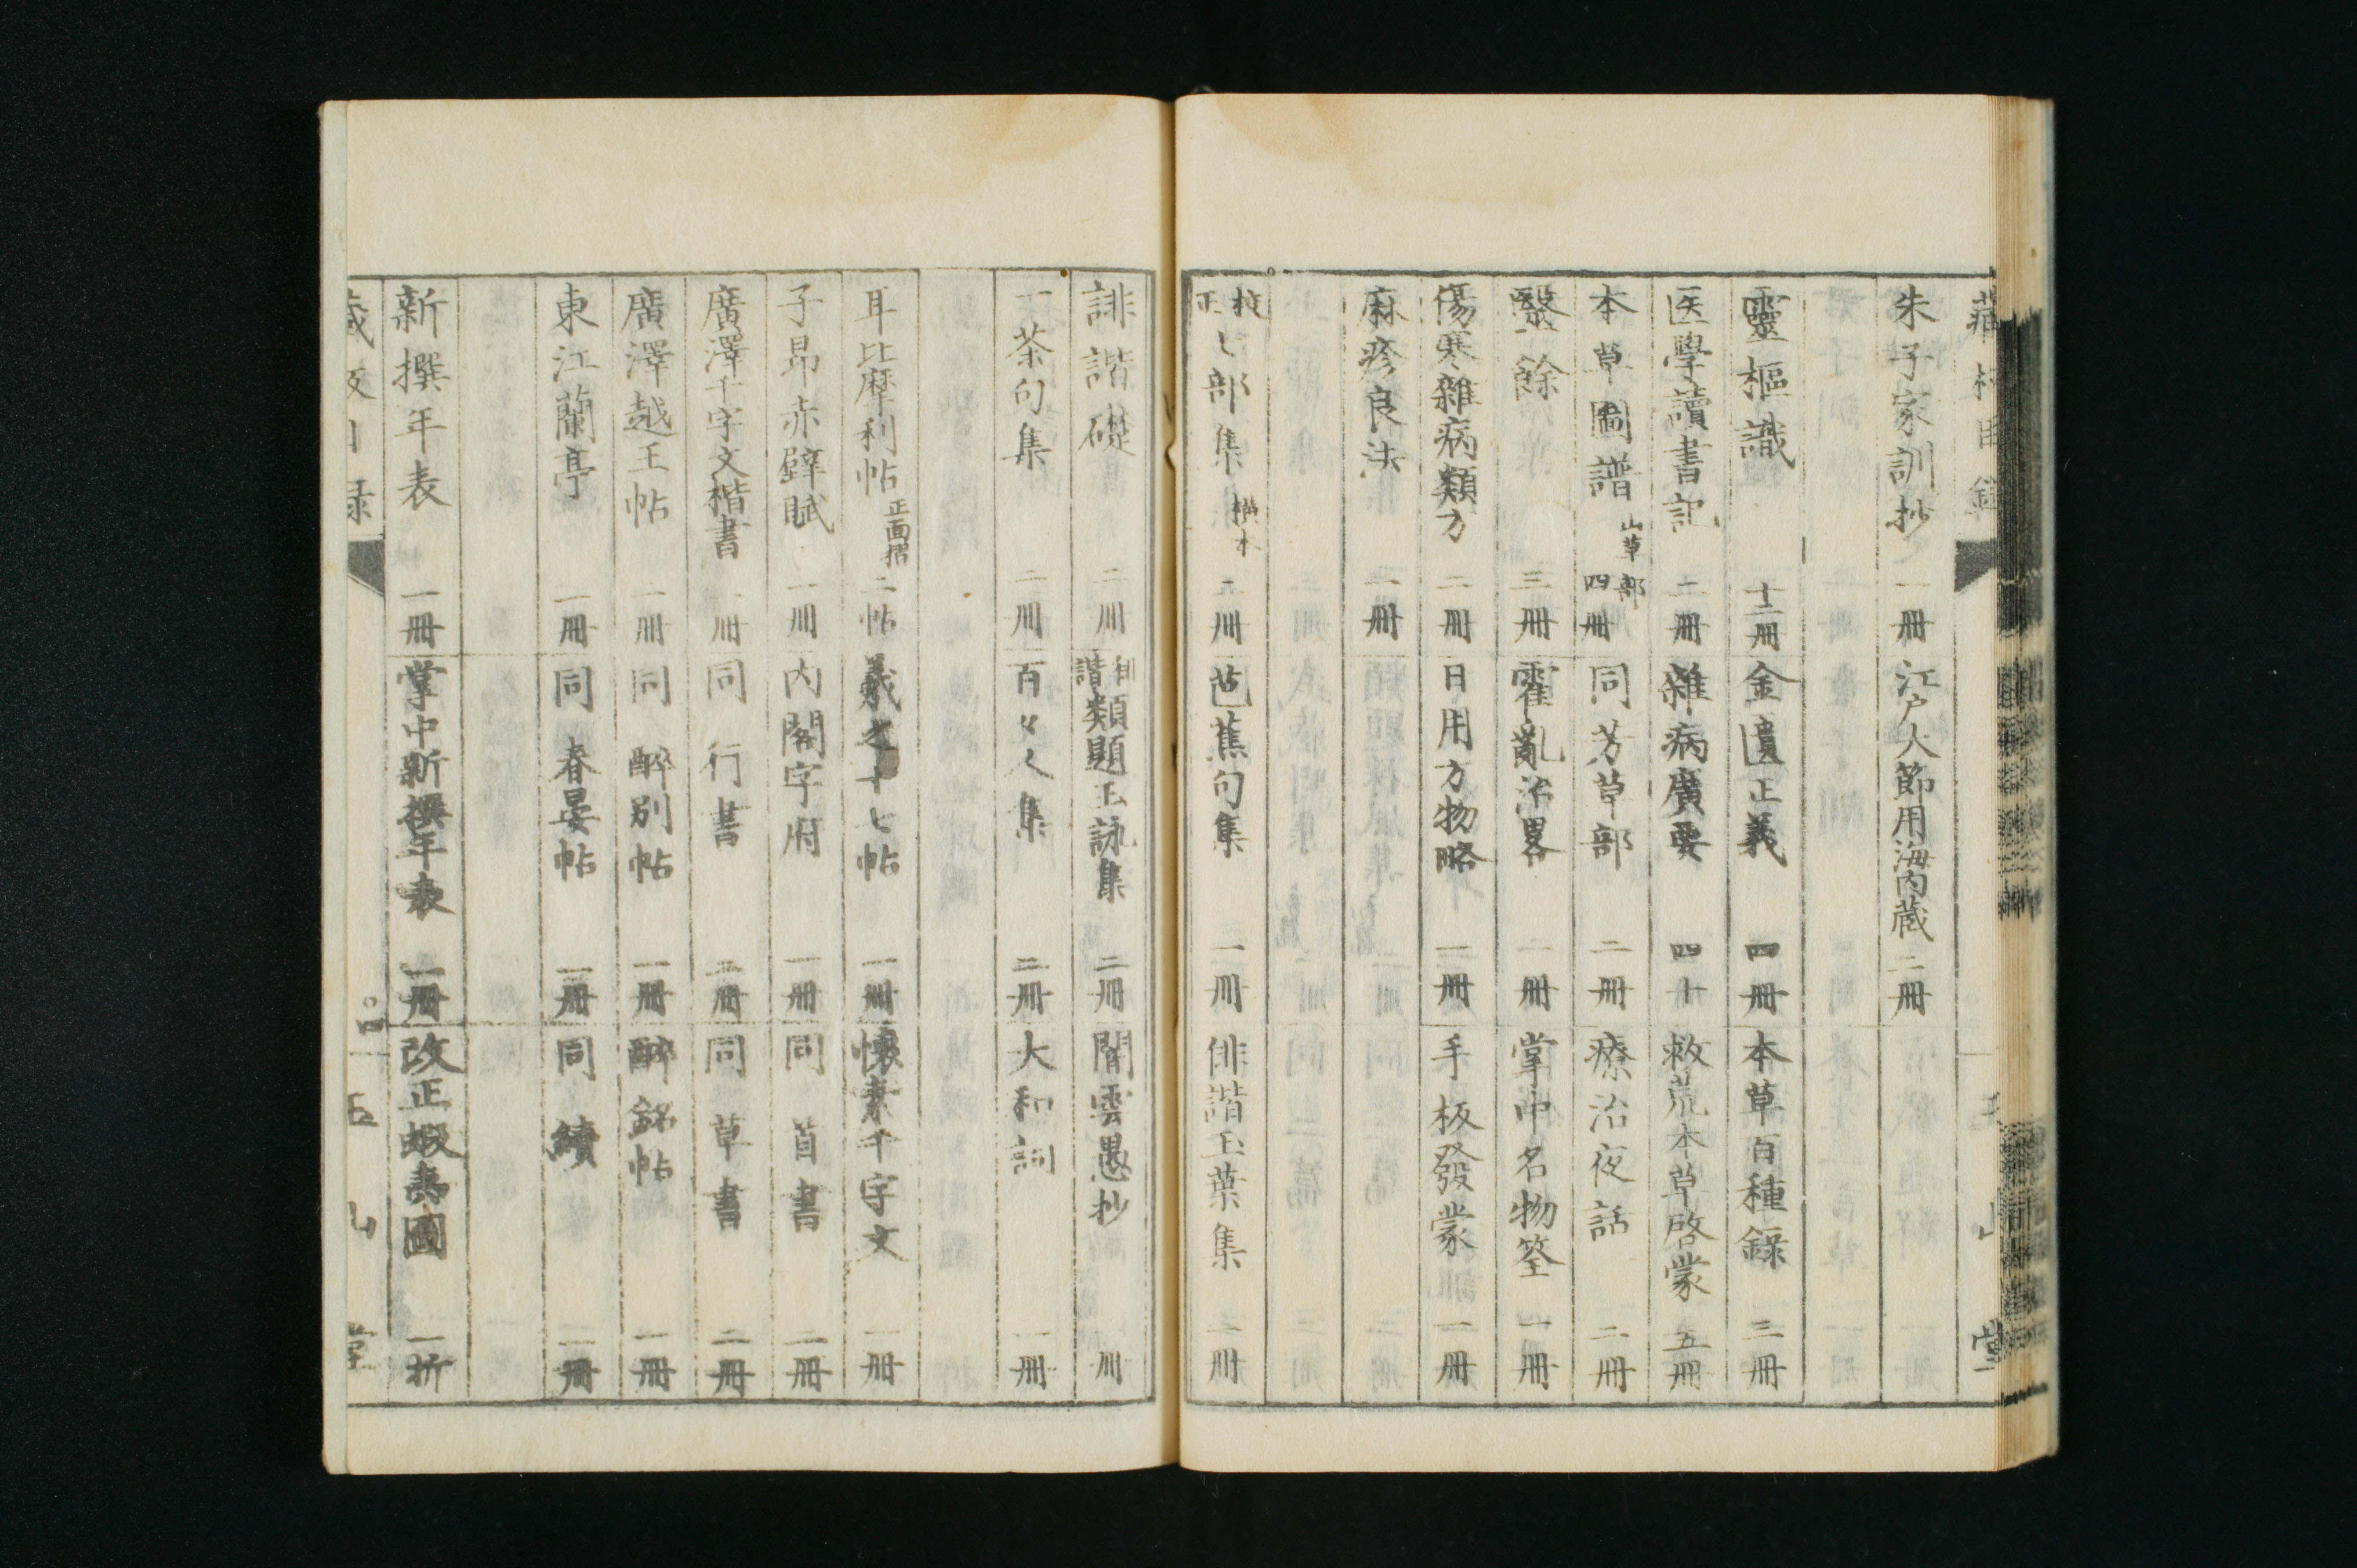 朱子家訓抄 一冊 江戸大節用海内蔵 二冊
靈樞識 十二冊 金匱正義 四冊 本草百種錄 三冊
医學讀書記 二冊 雜病廣要 四十 救荒本草啓蒙 五冊
本草圖譜 山草部 四冊 同芳草部 二冊 療治夜話 二冊
醫餘 三冊 霍亂治畧 一冊 掌中名物筌 一冊
傷寒雜病類方 二冊 日用方物略 一冊 手板發蒙 一冊
麻疹良法 一冊
校正七部集 横本 二冊 芭蕉句集 一冊 俳諧玉葉集 二冊
誹諧礎 二冊 俳諧類題玉詠集 二冊 闇雲愚抄 冊
一茶句集 二冊 百々人集 二冊 大和詞 一冊
耳比磨利帖 正面摺 二帖 羲之十七帖 一冊 懐素千字文 一冊
子昂赤壁賦 一冊 内閣字府 一冊 同 首書 二冊
廣澤千字文楷書 一冊 同 行書 二冊 同 草書 二冊
廣澤越王帖 一冊 同 酔別帖 一冊 酔銘帖 一冊
東江蘭亭 一冊 同 春晏帖 一冊 同 續 二冊
新撰年表 一冊 掌中新撰年表 一冊 改正蝦夷圖 一折
藏板目録 玉山堂